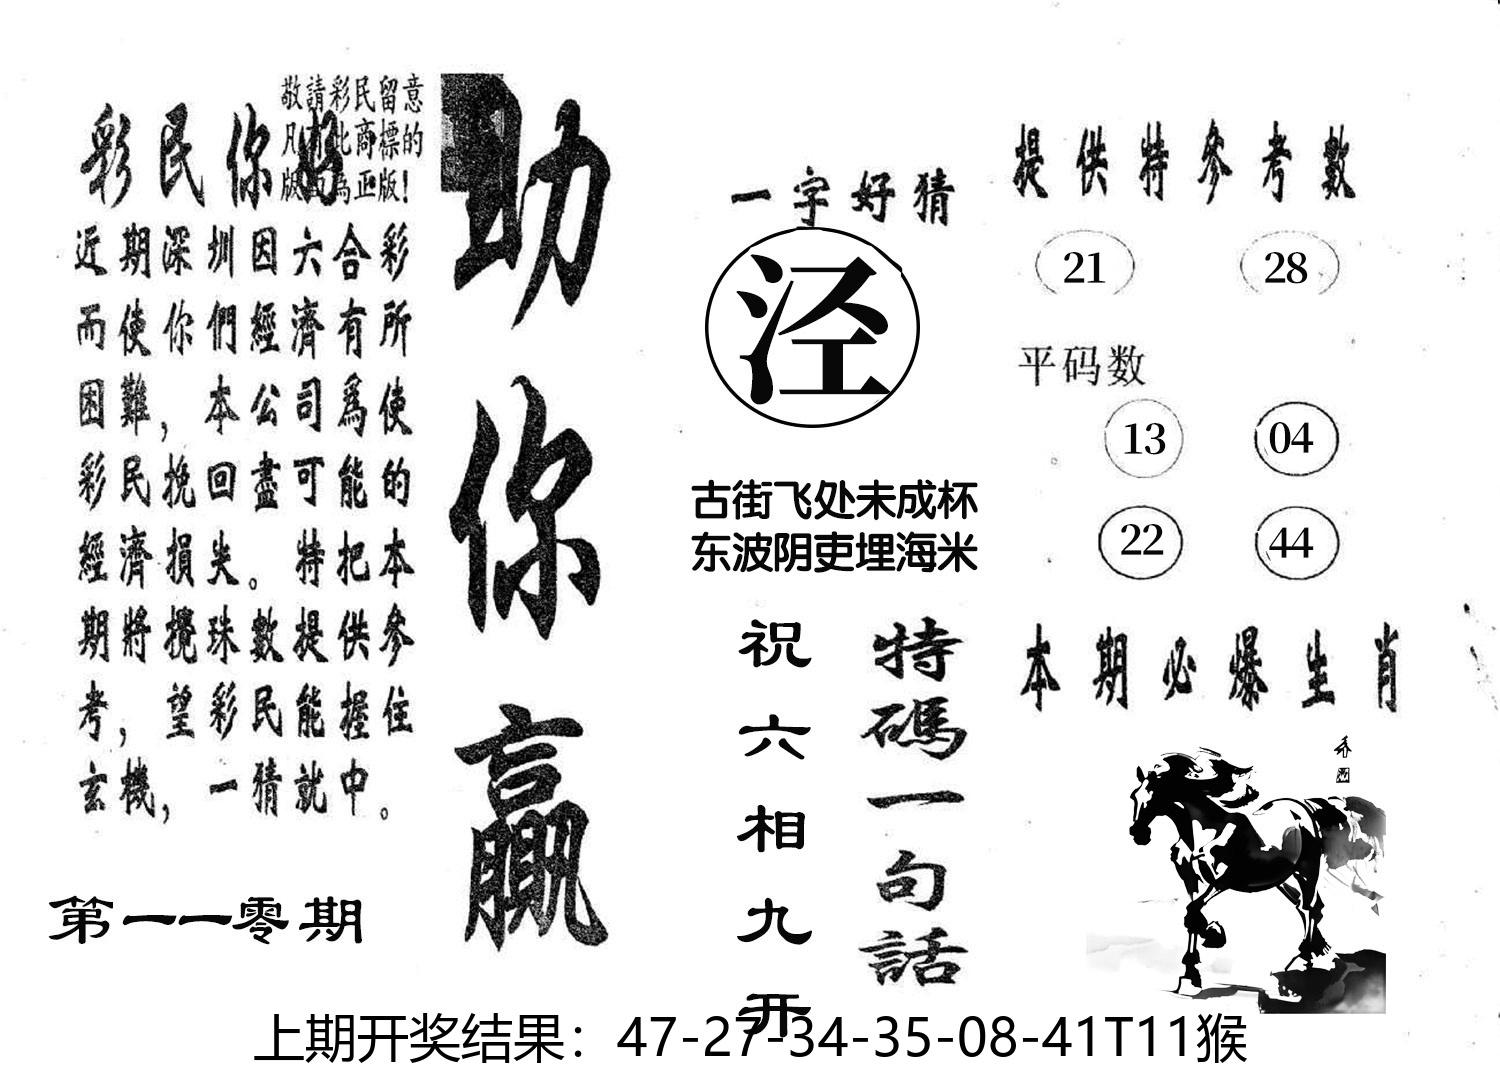 敬請彩民留意
凡有此商標的
版面為正版!
彩民你好
近期深圳因六合彩
而使你們經濟有所
困難，本公司爲使
彩民挽回盡可能的
經濟損失。特把本
期將攪珠數提供參
考，望彩民能握住
玄機，一猜就中。
第一一零期
助你贏
一字好猜
泾
古街飞处未成杯
东波阴吏埋海米
特碼一句話
祝六相九开
提供特參考數
21 28
平码数
13 04
22 44
本期必爆生肖
上期开奖结果：47-27-34-35-08-41T11猴